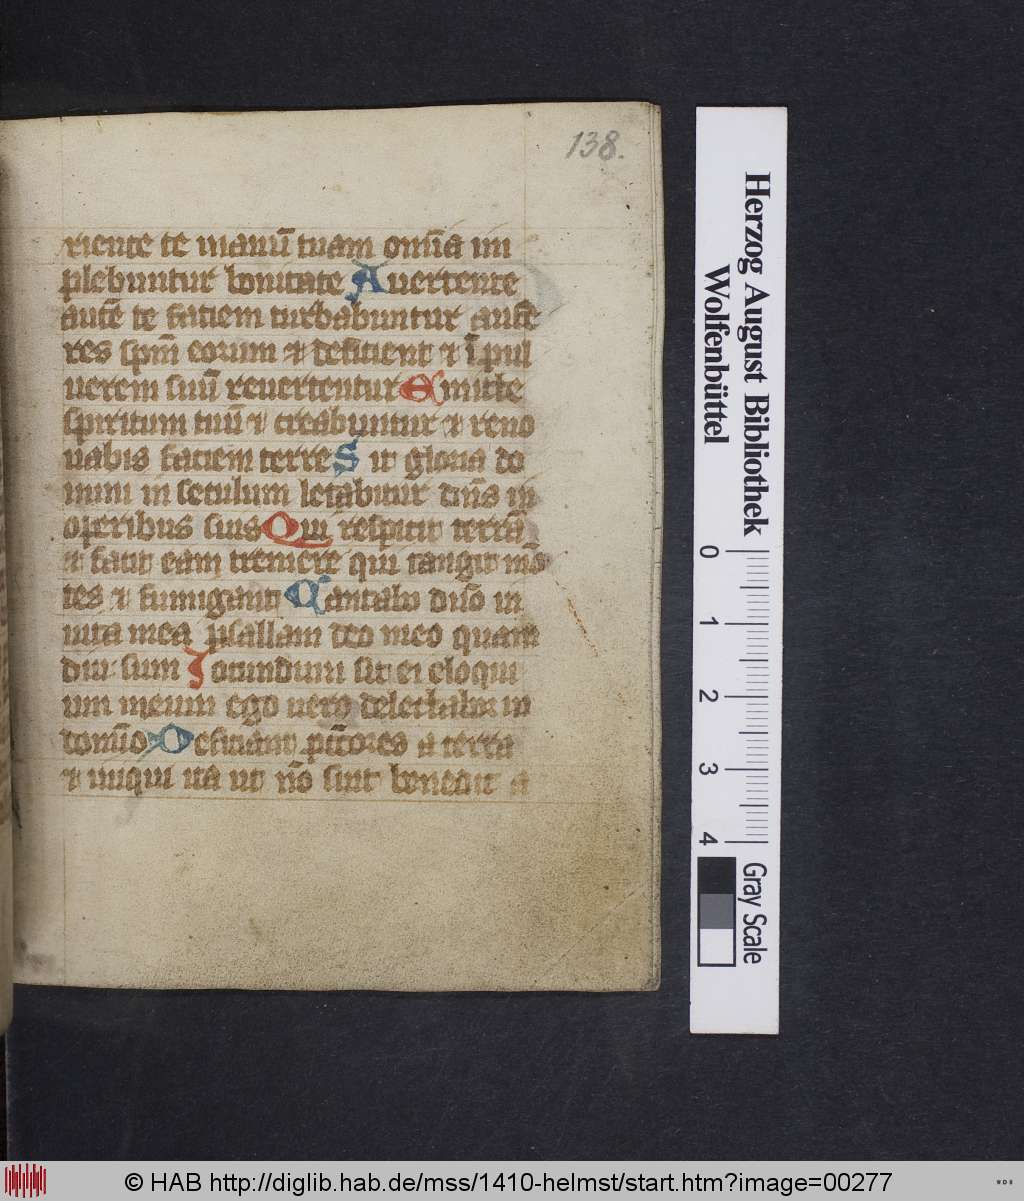 138.
riente te manū tuam om̄ia im
plebuntur bonitate Auertente
autē te faciem turbabuntur aufe
res sp̄m eorum et deficient et ī pul
uerem suū reuertentur Emitte
spiritum tuū et creabuntur et reno
uabis faciem terre Sit gloria do
mini in seculum letabitur dn̄s in
operibus suis Qui respicit terrā
et facit eam tremere qui tangit mō
tes et fumigant Cantabo dn̄o in
uita mea psallam deo meo quam
diu sum Jocundum sit ei eloqui
um meum ego uero delectabor in
domīo Deficiant p̄ctores a terra
et iniqui ita ut nō sint benedic a
Herzog August Bibliothek
Wolfenbüttel
0 1 2 3 4
Gray Scale
© HAB http://diglib.hab.de/mss/1410-helmst/start.htm?image=00277